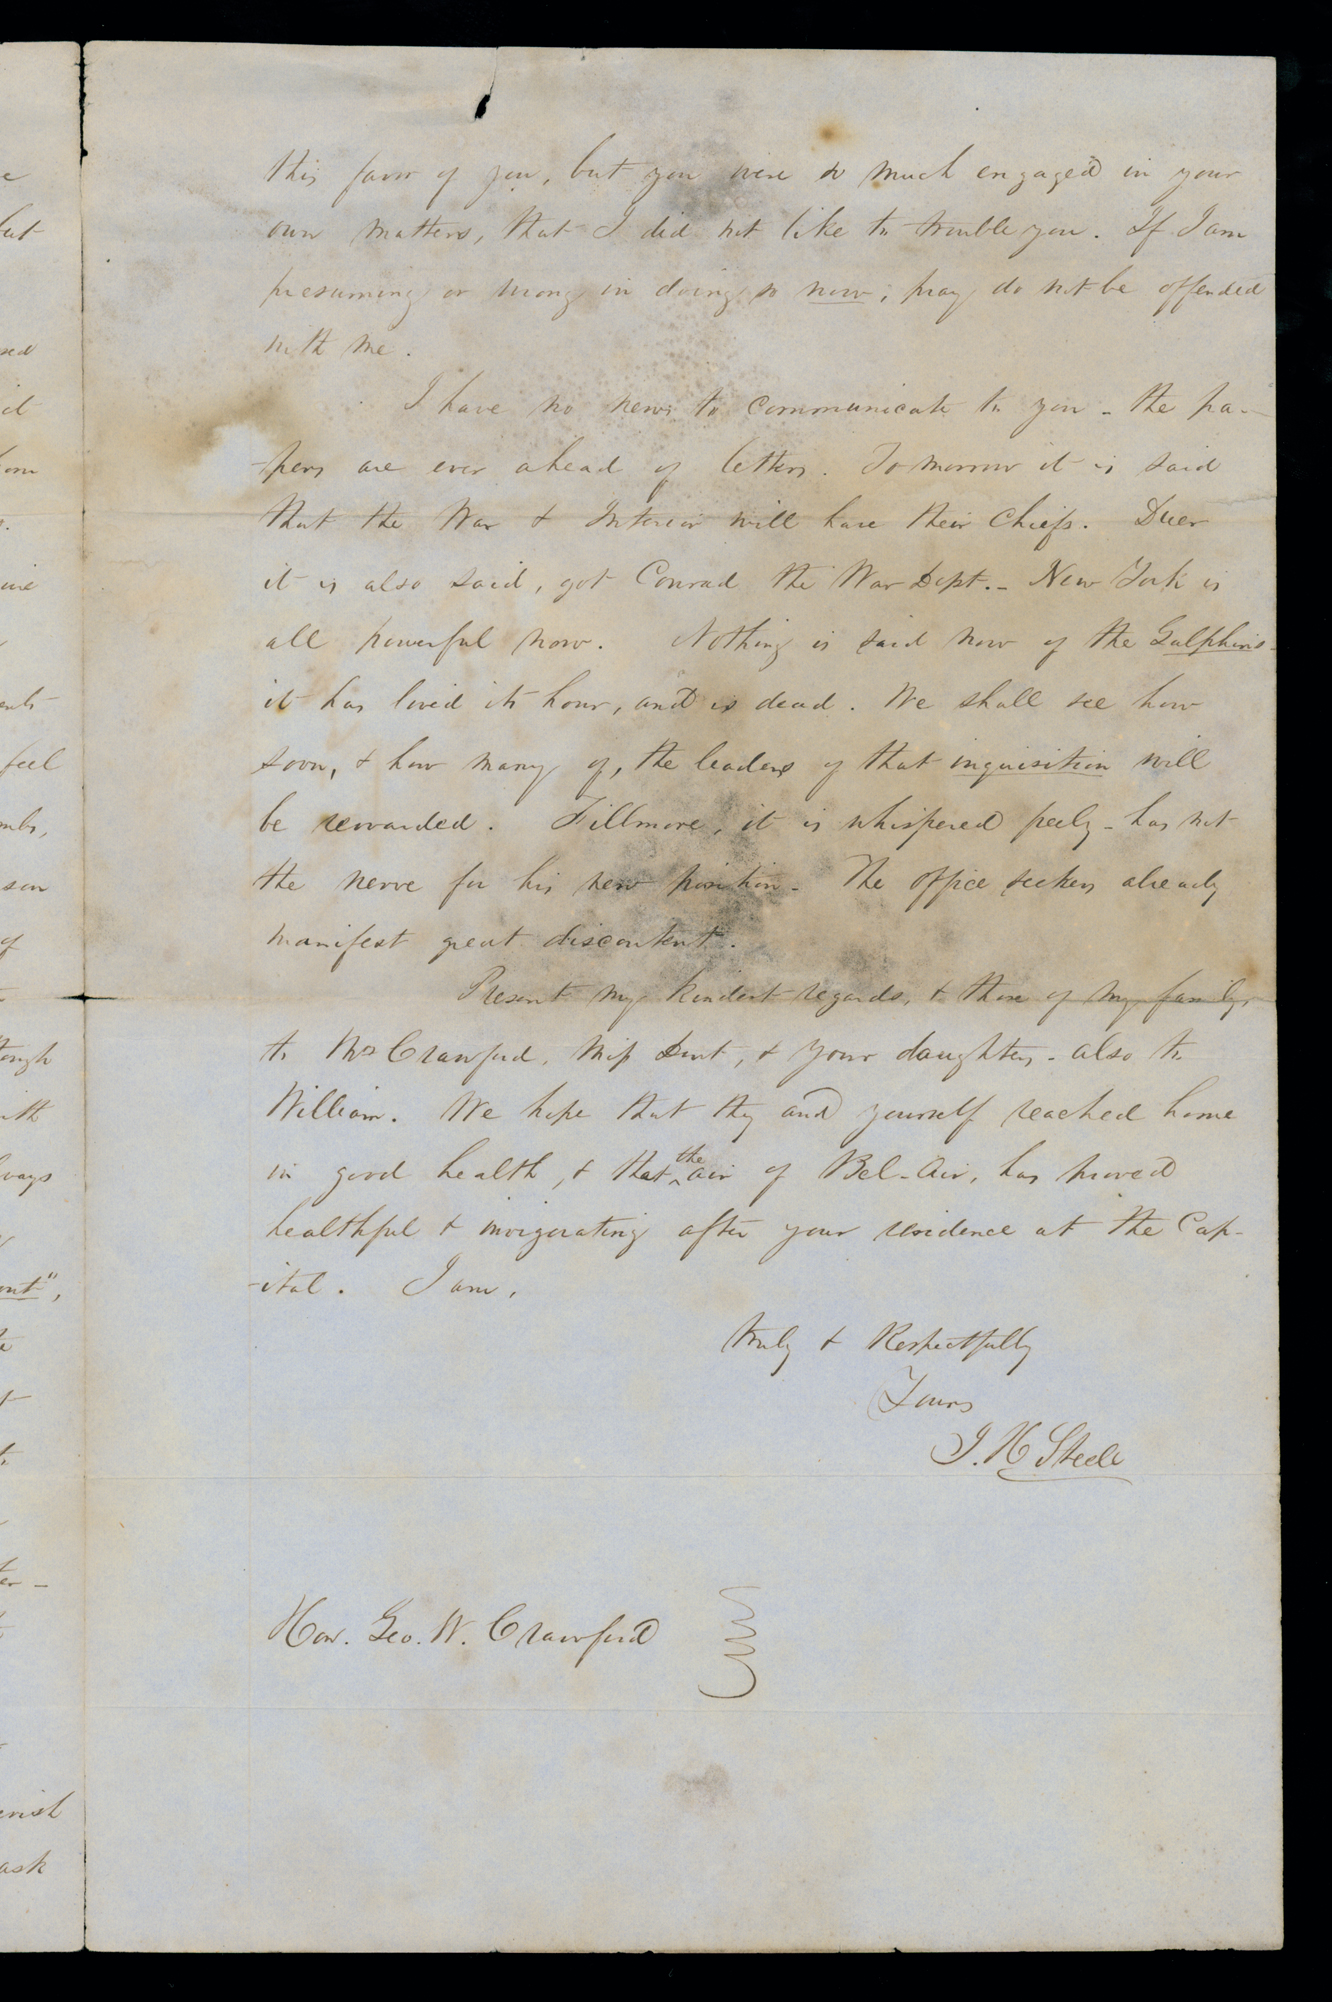 this favor of you, but you were so much engaged in your
own matters, that I did not like to trouble you. If I am
presuming or wrong in doing so now, pray do not be offended
with me.
I have no news to communicate to you - the pa-
-pers are ever ahead of letters. Tomorrow it is said
that the War & Interior will have their Chiefs. Duer
it is also said, got Conrad the War Dept. - New York is
all powerful now. Nothing is said now of the Galphins -
it has lived its hour, and is dead. We shall see how
soon, & how many of, the leaders of that inquisition will
be rewarded. Fillmore, it is whispered freely - has not
the nerve for his new position - The office seekers already
manifest great discontent.
Present my kindest regards, & those of my family,
to Mrs Crawford, Miss Dent, & your daughters - also to
William. We hope that they and yourself reached home
in good health, & that the air of Bel-Air, has proved
healthful & invigorating after your residence at the Cap-
-ital. I am,
truly & Respectfully
Yours
J. H Steele
Hon. Geo. W. Crawford